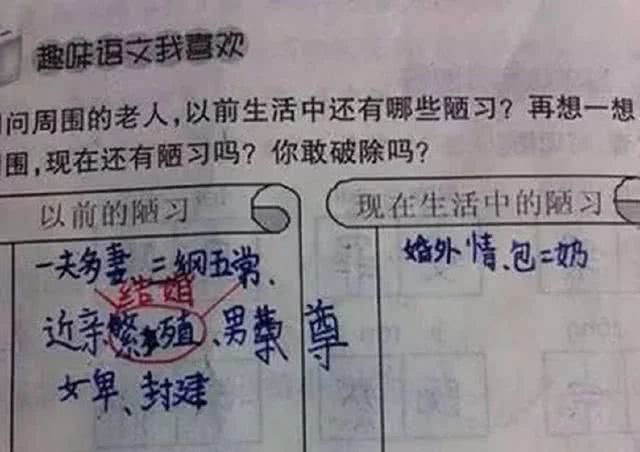 趣味语文我喜欢
问周围的老人,以前生活中还有哪些陋习?再想一想
围,现在还有陋习吗?你敢破除吗?
以前的陋习
一夫多妻、三綱五常、
结婚
近亲繁殖、男尊
女卑、封建
现在生活中的陋习
婚外情、包二奶